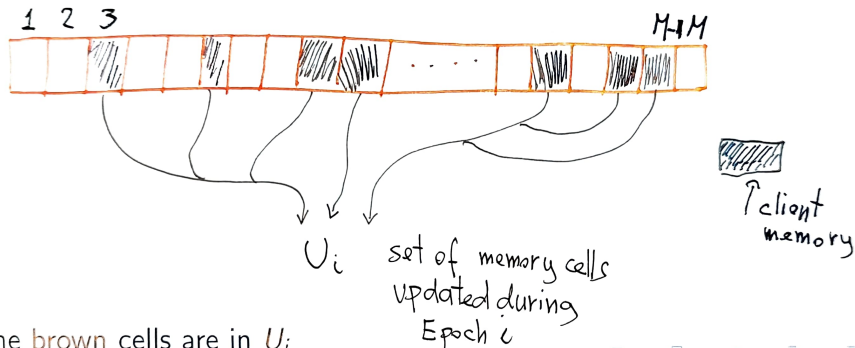 1 2 3 M-1 M
. . . . .
↑client
memory
U_i set of memory cells
updated during
Epoch i
ne brown cells are in U_i